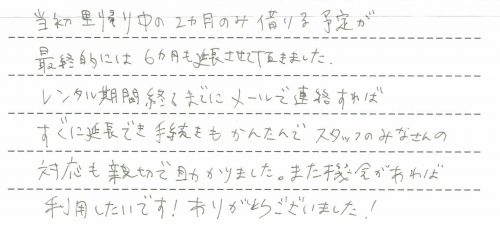 当初里帰り中の2カ月のみ借りる予定が
最終的には6カ月も延長させて頂きました.
レンタル期間終るまでにメールで連絡すれば
すぐに延長でき手続きもかんたんでスタッフのみなさんの
対応も親切で助かりました。また機会があれば
利用したいです!ありがとうございました!